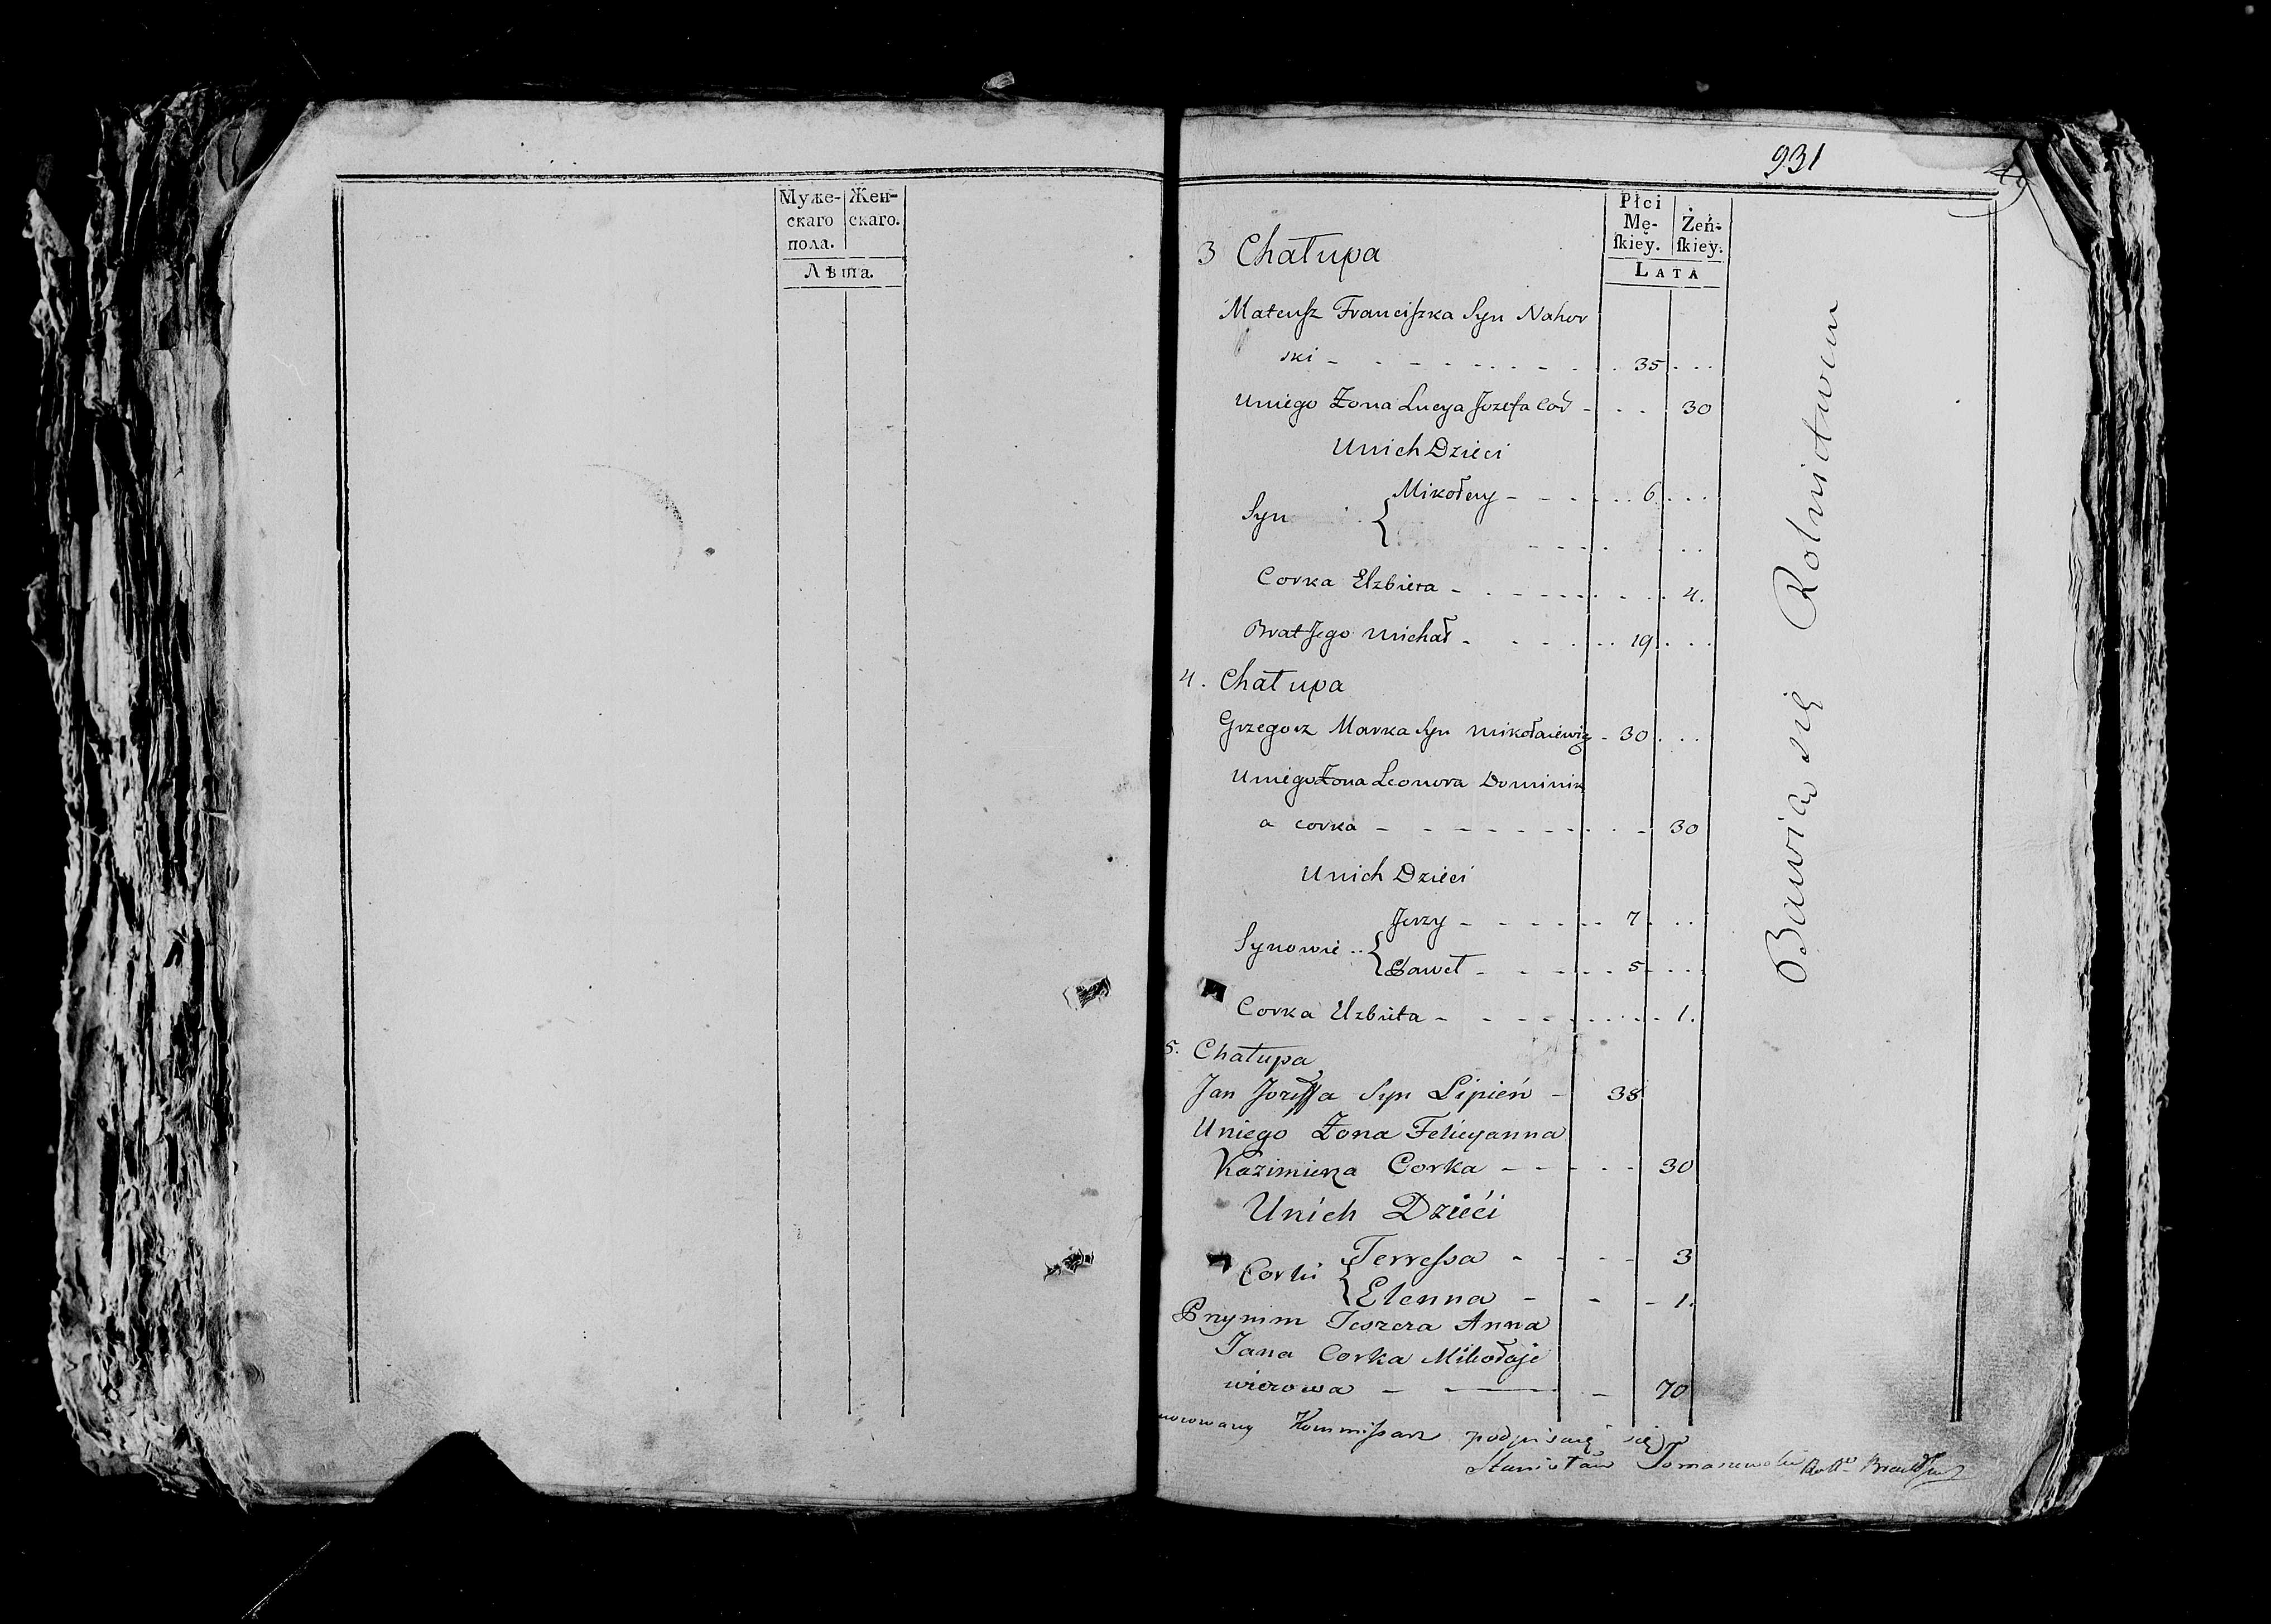 Муже-
скаго
пола.
Жен-
скаго.
Лѣта.
931
49
Płci
Mę-
ſkiey.
Żeń-
ſkiey.
LATA
3 Chałupa
Mateuſz Franciſzka Syn Nahor
ski - 35
Uniego Żona Lucya Jozefa Cor - 30
Unich Dzieci
Syn { Mikołay - 6
Corka Elzbieta - 4.
Brat Jego Michał - 19
4. Chałupa
Grzegorz Marka Syn Mikołaiewicz - 30
Uniego Żona Leonora Dominik
a corka - 30
Unich Dzieci
Synowie { Jerzy - 7
Paweł - 5
Corka Elzbieta - 1.
5. Chałupa
Jan Jozeffa Syn Lipień - 38
Uniego Żona Felicyanna
Kazimierza Corka - 30
Unich Dzieći
Corki { Terreſsa - 3
Elenna - 1.
Przynim Teszcza Anna
Jana Corka Mikołaje
wiczowa - 70
Bawią się Rolnictwem
Kommiſsarz podpisuię się
Stanisław Tomaszewski